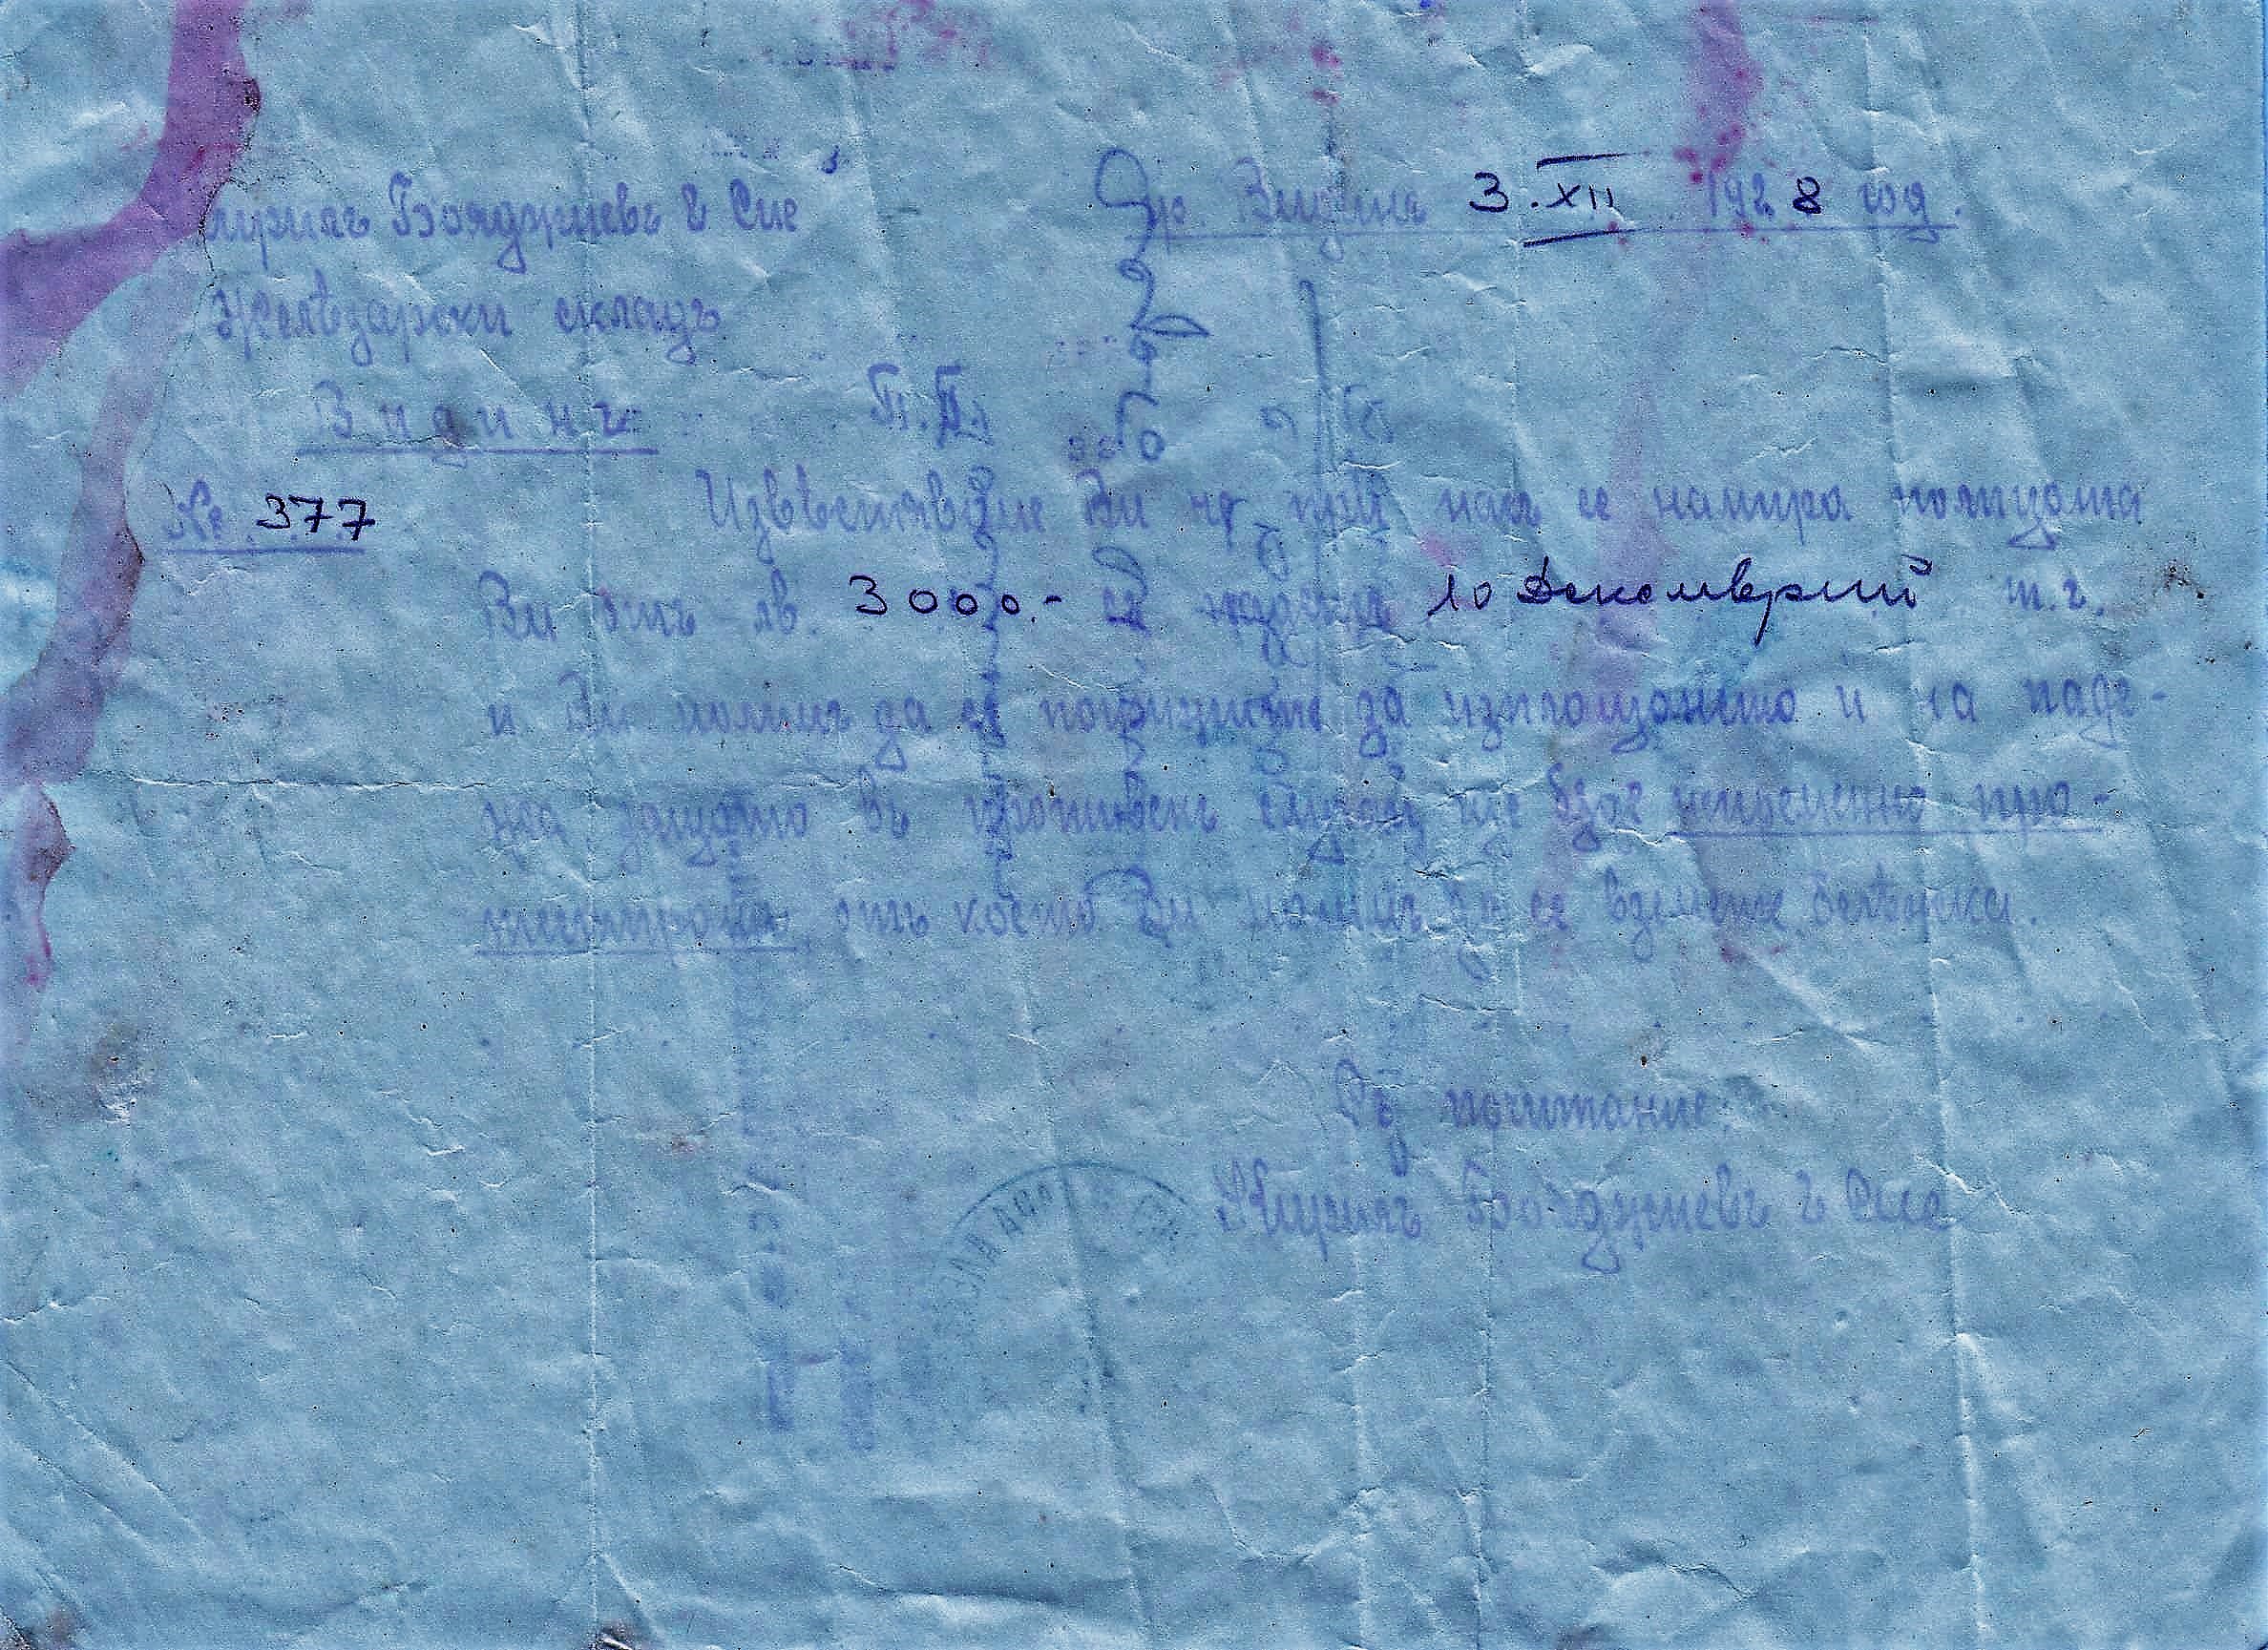 Кирилъ Бояджиевъ & Сие
гр. Видинъ 3.XII 1928 год.
Желѣзарски складъ
Видинъ
П.П.
№ 377
Извѣстяваме Ви че при насъ се намира полицата
Ви отъ лв. 3000.- съ падежъ 10 Декемврий т.г.
и Ви молимъ да се погрижите за изплащането и на паде-
жа защото въ противенъ случай ще бѫде непременно про-
тестирана, отъ което Ви молимъ да си вземете бележка.
Съ почитание:
Кирилъ Бояджиевъ & Сие